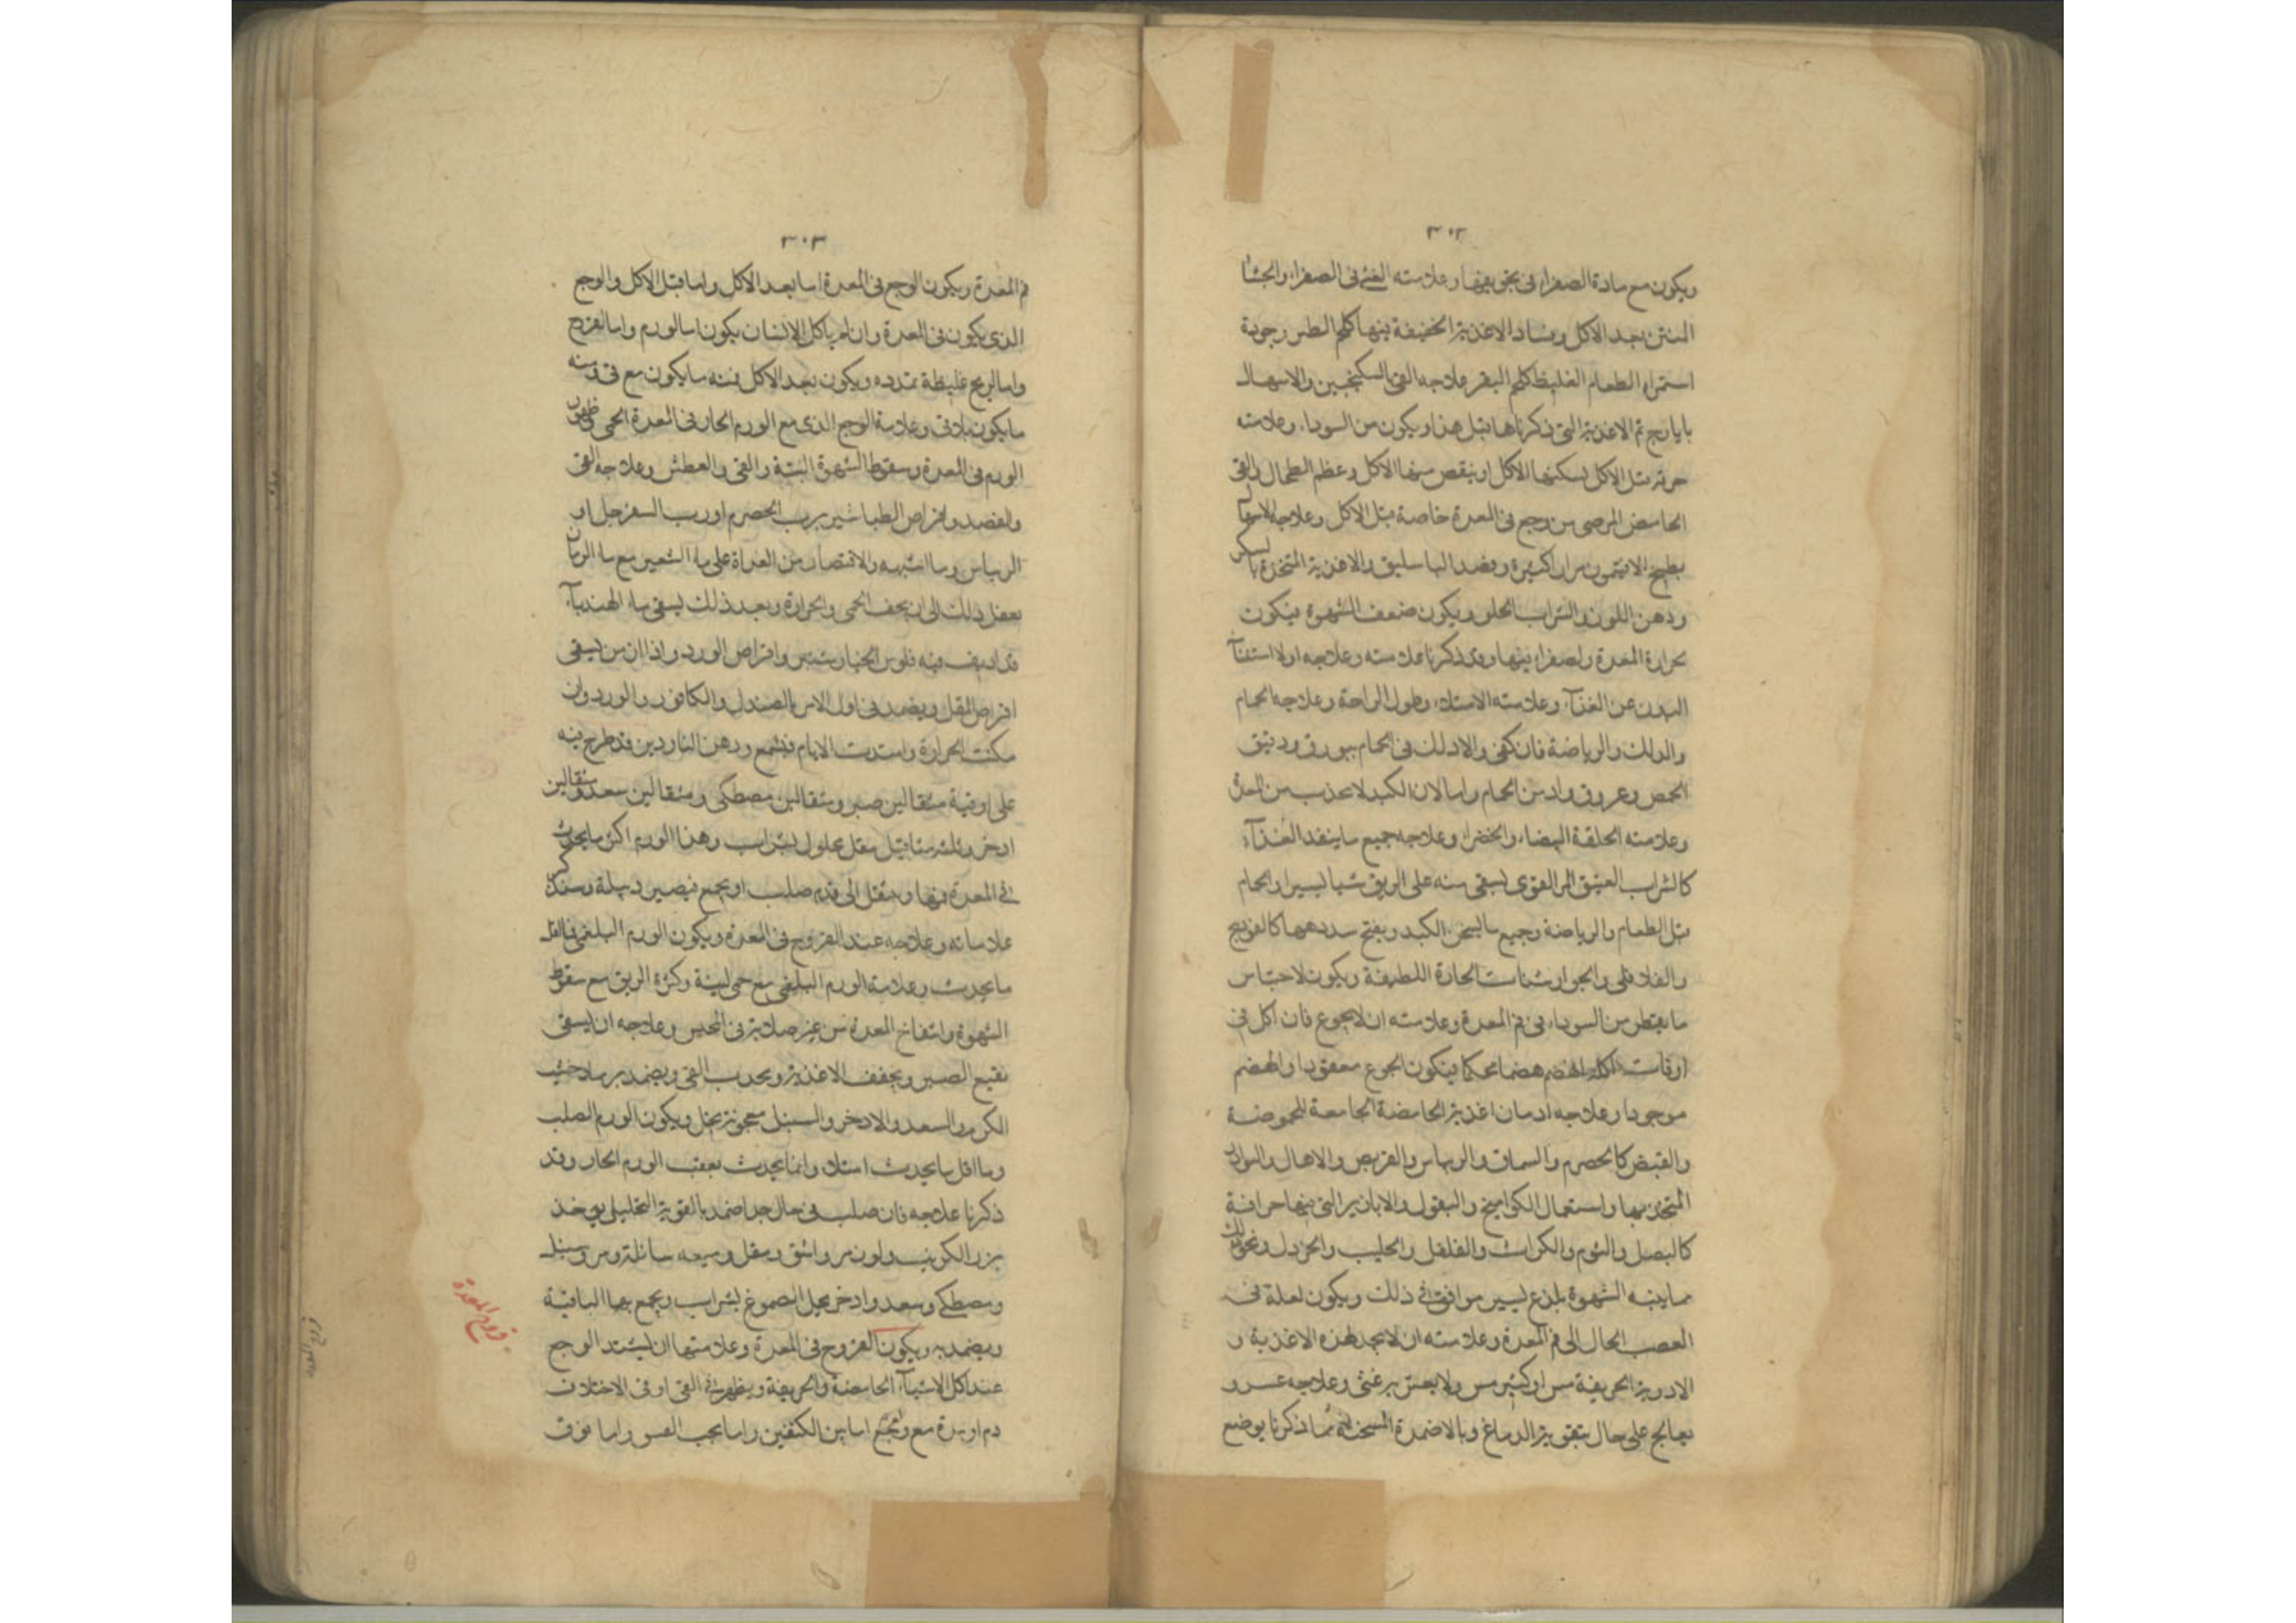 ٣٠٢
ويكون مع مادة الصفراء في تجويفها وعلامته القئ في الصفراء والجشا
المنتن بعد الاكل وفساد الاغذية الخفيفة فيها كلحم الطير وجودة
استمراء الطعام الغليظ كلحم البقر علاجه القئ بالسكنجبين والاسهال
بايارج ثم الاغذية التي ذكرناها قبل هذا ويكون من السوداء وعلامته
حرقة قبل الاكل يسكنها الاكل او ينقص منها الاكل وعظم الطحال والقئ
الحامض من وجع في المعدة خاصة قبل الاكل وعلاجه الاسهال
بطبيخ الافتيمون مرارا كثيرة وفصد الباسليق والاغذية المتخذة بالسكر
ودهن اللوز والشراب الحلو ويكون ضعف الشهوة فيكون
لحرارة المعدة والصفراء فيها وقد ذكرنا علامته وعلاجه او لاستغناء
البدن عن الغذاء وعلامته الامتلاء وطول الراحة وعلاجه الحمام
والدلك والرياضة فان كفى والا دلك في الحمام ببورق ودقيق
الحمص وعروق وادمن الحمام واما لان الكبد لا تجذب من المعدة
وعلامته الخلفة البيضاء والخضراء وعلاجه جميع ما ينفذ الغذاء
كالشراب العتيق المر القوي يسقى منه على الريق شيا يسيرا والحمام
قبل الطعام والرياضة وجميع ما يسخن الكبد ويفتح سددها كالفوذنج
والفلافلي والجوارشنات الحارة اللطيفة ويكون لاحتباس
ما يقطر من السوداء في فم المعدة وعلامته ان لا يجوع فان اكل في
اوقات اكله انهضم هضما محكما فيكون الجوع مفقودا والهضم
موجودا وعلاجه ادمان اغذية الحامضة الجامعة للحموضة
والقبض كالحصرم والسماق والريباس والقريص والاهال والبوارد
المتخذ بها واستعمال الكواميخ والبقول والابازير التي فيها حرافة
كالبصل والثوم والكراث والفلفل والحليب والخردل ونحو ذلك
مما ينبه الشهوة بلذع يسير موافق في ذلك ويكون لعلة في
العصب الحال الى فم المعدة وعلامته ان لا يجد لهذه الاغذية و
الادوية الحريفة مس او كثير مس ولا يحس بغثي وعلاجه عسر و
يعالج على حال بتقوية الدماغ وبالاضمدة المسخنة مما ذكرنا يوضع
٣٠٣
فم المعدة ويكون الوجع في المعدة اما بعد الاكل واما قبل الاكل والوجع
الذي يكون في المعدة وان لم ياكل الانسان يكون اما لورم واما لقروح
واما لريح غليظة تمدده ويكون بعد الاكل فمنه ما يكون مع قئ ومنه
ما يكون بلا قئ وعلامة الوجع الذي مع الورم الحار في المعدة الحمى وظهور
الورم في المعدة وسقوط الشهوة البتة والقئ والعطش وعلاجه القئ
والفصد واقراص الطباشير برب الحصرم او رب السفرجل او
الريباس وما اشبهه والاقتصار من الغداة على ماء الشعير مع ماء الرمان
يفعل ذلك الى ان يخف الحمى والحرارة وبعد ذلك يسقى ماء الهندباء
قد اديف فيه فلوس الخيارشنبر واقراص الورد واذا ازمن يسقى
اقراص المقل ويضمد في اول الامر بالصندل والكافور والورد وان
سكنت الحرارة وامتدت الايام فبشمع ودهن الناردين قد طرح فيه
على اوقية مثقالين صبر ومثقالين مصطكى ومثقالين سعد ومثقالين
اذخر وثلثه مثاقيل مقل محلول بشراب وهذا الورم اكثر ما يحدث
في المعدة فيها وينتقل الى ورم صلب او يجمع فيصير دبيلة وسنذكر
علاماته وعلاجه عند القروح في المعدة ويكون الورم البلغمي فاقل
ما يحدث وعلامة الورم البلغمي مع حمى لينة وكثرة الريق مع سقوط
الشهوة وانتفاخ المعدة من غير صلابة في المجس وعلاجه ان يسقى
نقيع الصبر ويجفف الاغذية ويجرب القئ ويضمد برماد خشب
الكرم والسعد والاذخر والسنبل معجونة بخل ويكون الورم الصلب
وما اقل ما يحدث ابتداء وانما يحدث بعقب الورم الحار وقد
ذكرنا علاجه فان صلب في حال جدا ضمد بالقوية التحليل يوخذ
بزر الكرنب ولوز مر واشق ومقل وميعه سائلة ومر وسنبل
ومصطكى وسعد واذخر يحل الصموغ بشراب ويجمع بها الباقية
ويضمد به ويكون القروح في المعدة وعلامتها ان يشتد الوجع
عند اكل الاشياء الحامضة والحريفة ويظهر في القئ او في الاختلاف
دم او مدة مع وجع اما بين الكتفين واما بجب القسر واما فوق
قروح المعدة
قروح المعدة